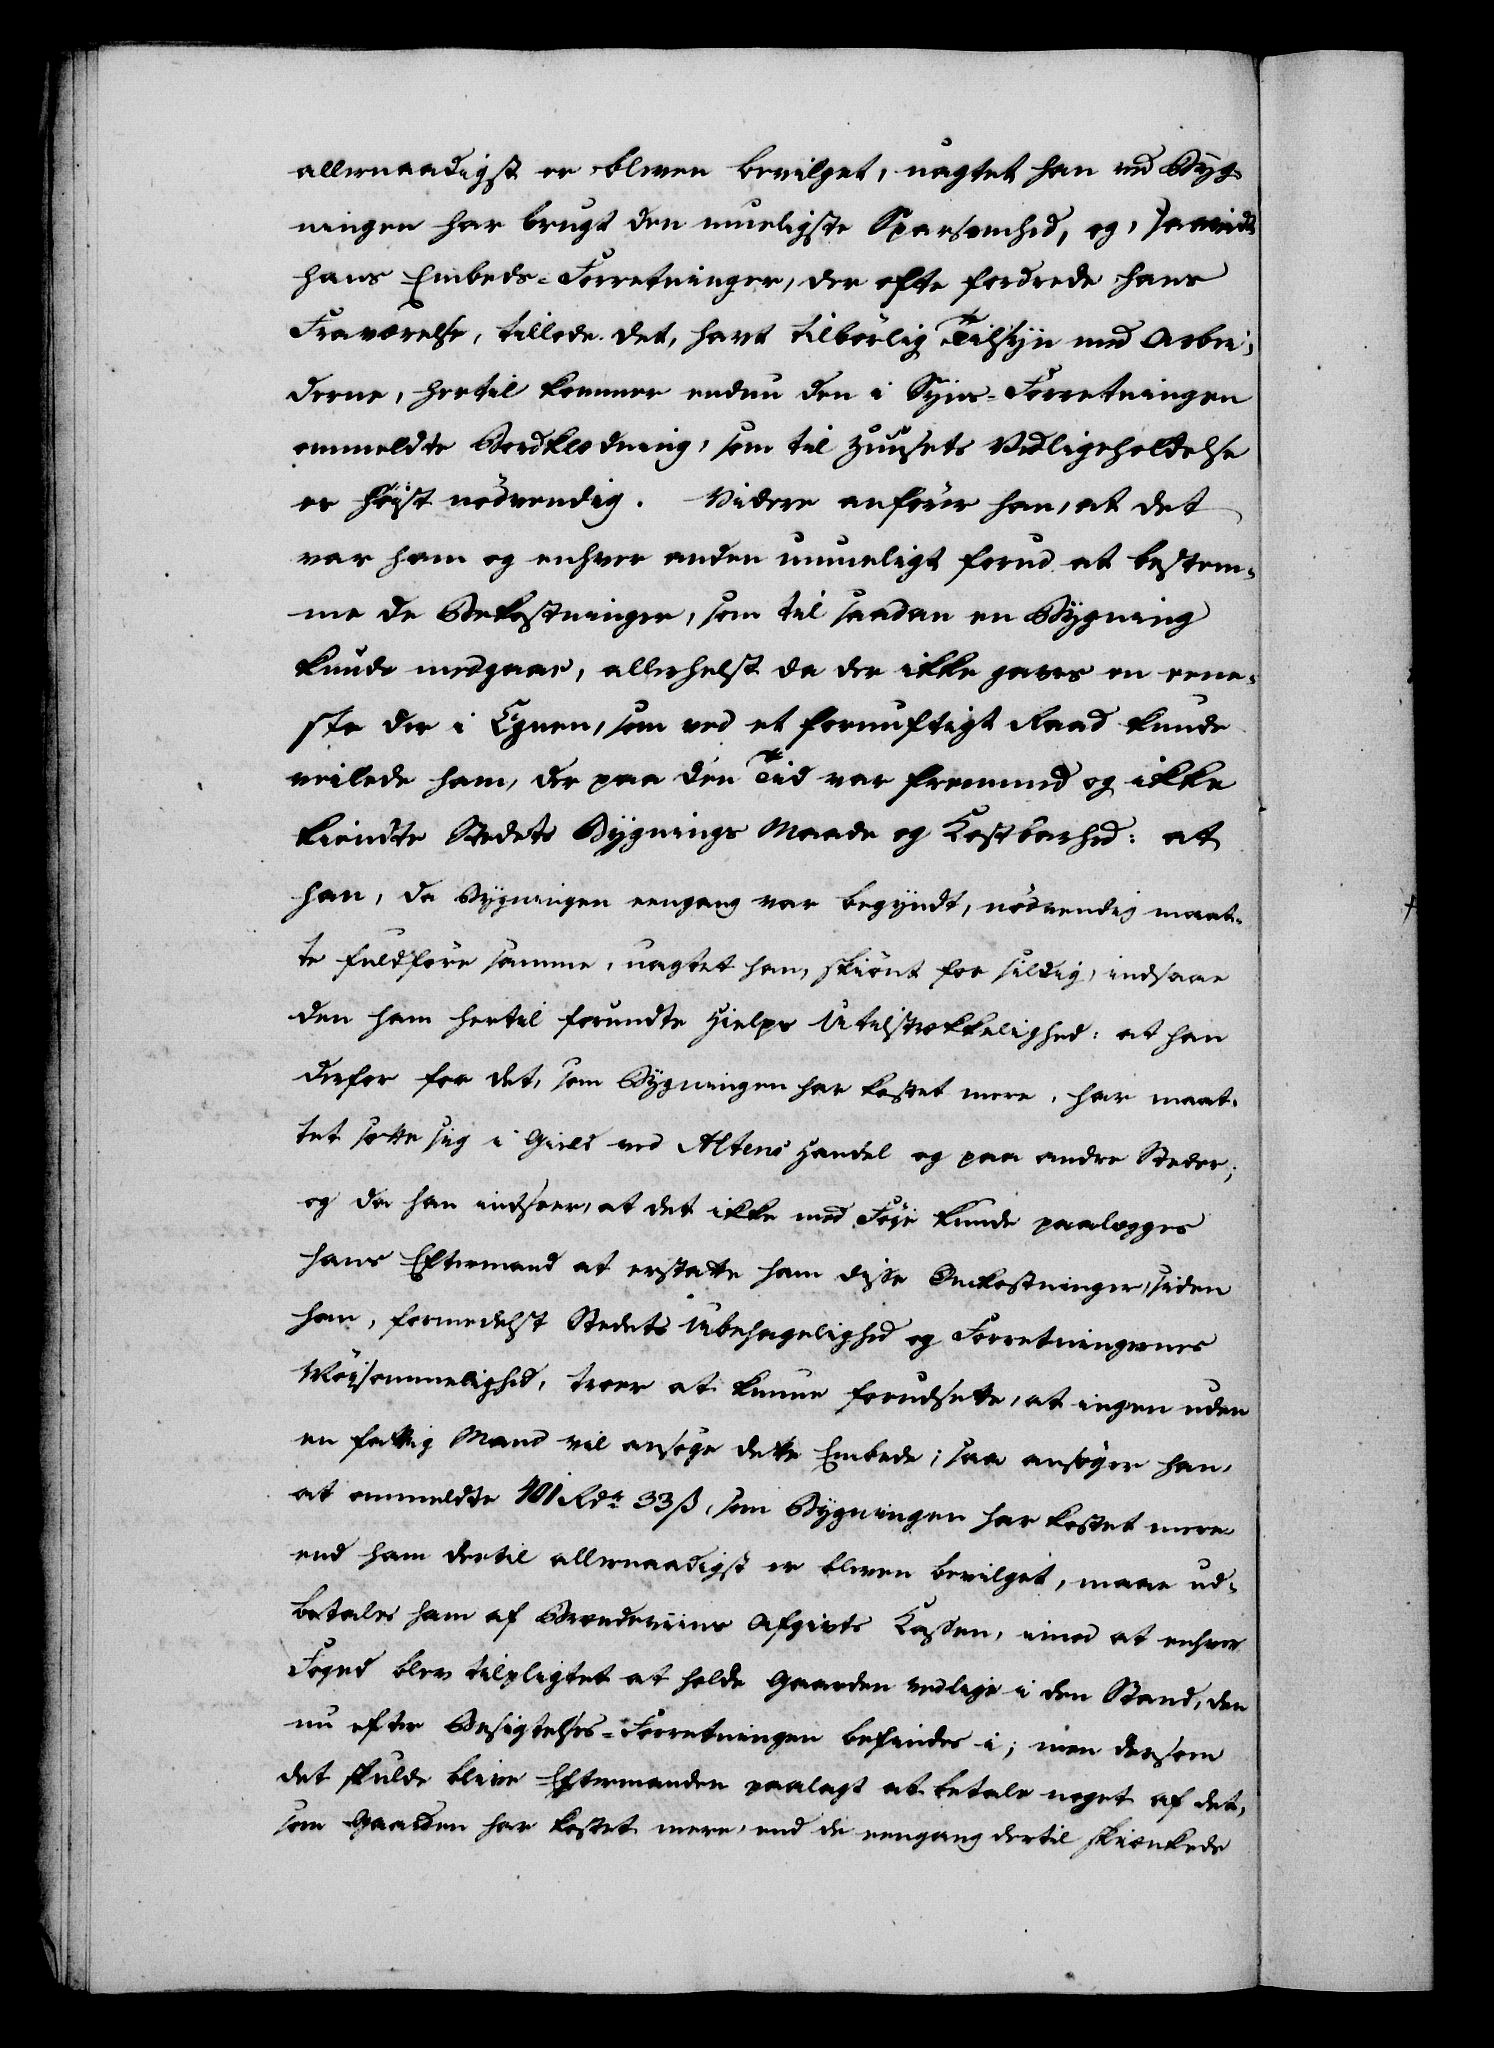 allernaadigst er bleven bevilget, uagtet han ved Byg-
ningen har brugt den mueligste Sparsomhed, og, saavidt
hans Embeds-Forretninger, der ofte fordrede hans
Fraværelse, tillode det, havt tilbørlig Tilsyn med Arbei-
derne, hertil kommer endnu den i Syns-Forretningen
ommeldte Bordklædning, som til Huusets Vedligeholdelse
er høist nødvendig. Videre anfører han, at det
var ham og enhver anden umueligt forud at bestem-
me de Bekostninger, som til saadan en Bygning
kunde medgaae, allerhelst da der ikke gaves en eene-
ste der i Egnen, som ved et fornuftigt Raad kunde
veilede ham, der paa den Tid var fremmed og ikke
kiendte Stedets Bygnings Maade og Kostbarhed: at
han, da Bygningen eengang var begyndt, nødvendig maat-
te fuldføre samme, uagtet han, skiønt for sildig, indsaae
den ham hertil forundte Hielps Utilstrekkelighed: at han
derfor for det, som Bygningen har kostet mere, har maat-
tet sætte sig i Gield ved Altens Handel og paa andre Steder;
og da han indseer, at det ikke med Føje kunde paalægges
hans Eftermand at erstatte ham disse Omkostninger, siden
han, formedelst Stedets Ubehagelighed og Forretningernes
Møisommelighed, troer at kunne forudsætte, at ingen uden
en fattig Mand vil ansøge dette Embede; saa ansøger han,
at ommeldte 401 Rdr 33 ß, som Bygningen har kostet mere
end ham dertil allernaadigst er bleven bevilget, maae ud-
betales ham af Brændeviins Afgivts Kassen, imod at enhver
Foged blev tilpligtet at holde Gaarden vedlige i den Stand, den
nu efter Besigtelses-Forretningen befindes i; men dersom
det skulde blive Eftermanden paalagt at betale noget af det,
som Gaarden har kostet mere, end de eengang dertil skienkede